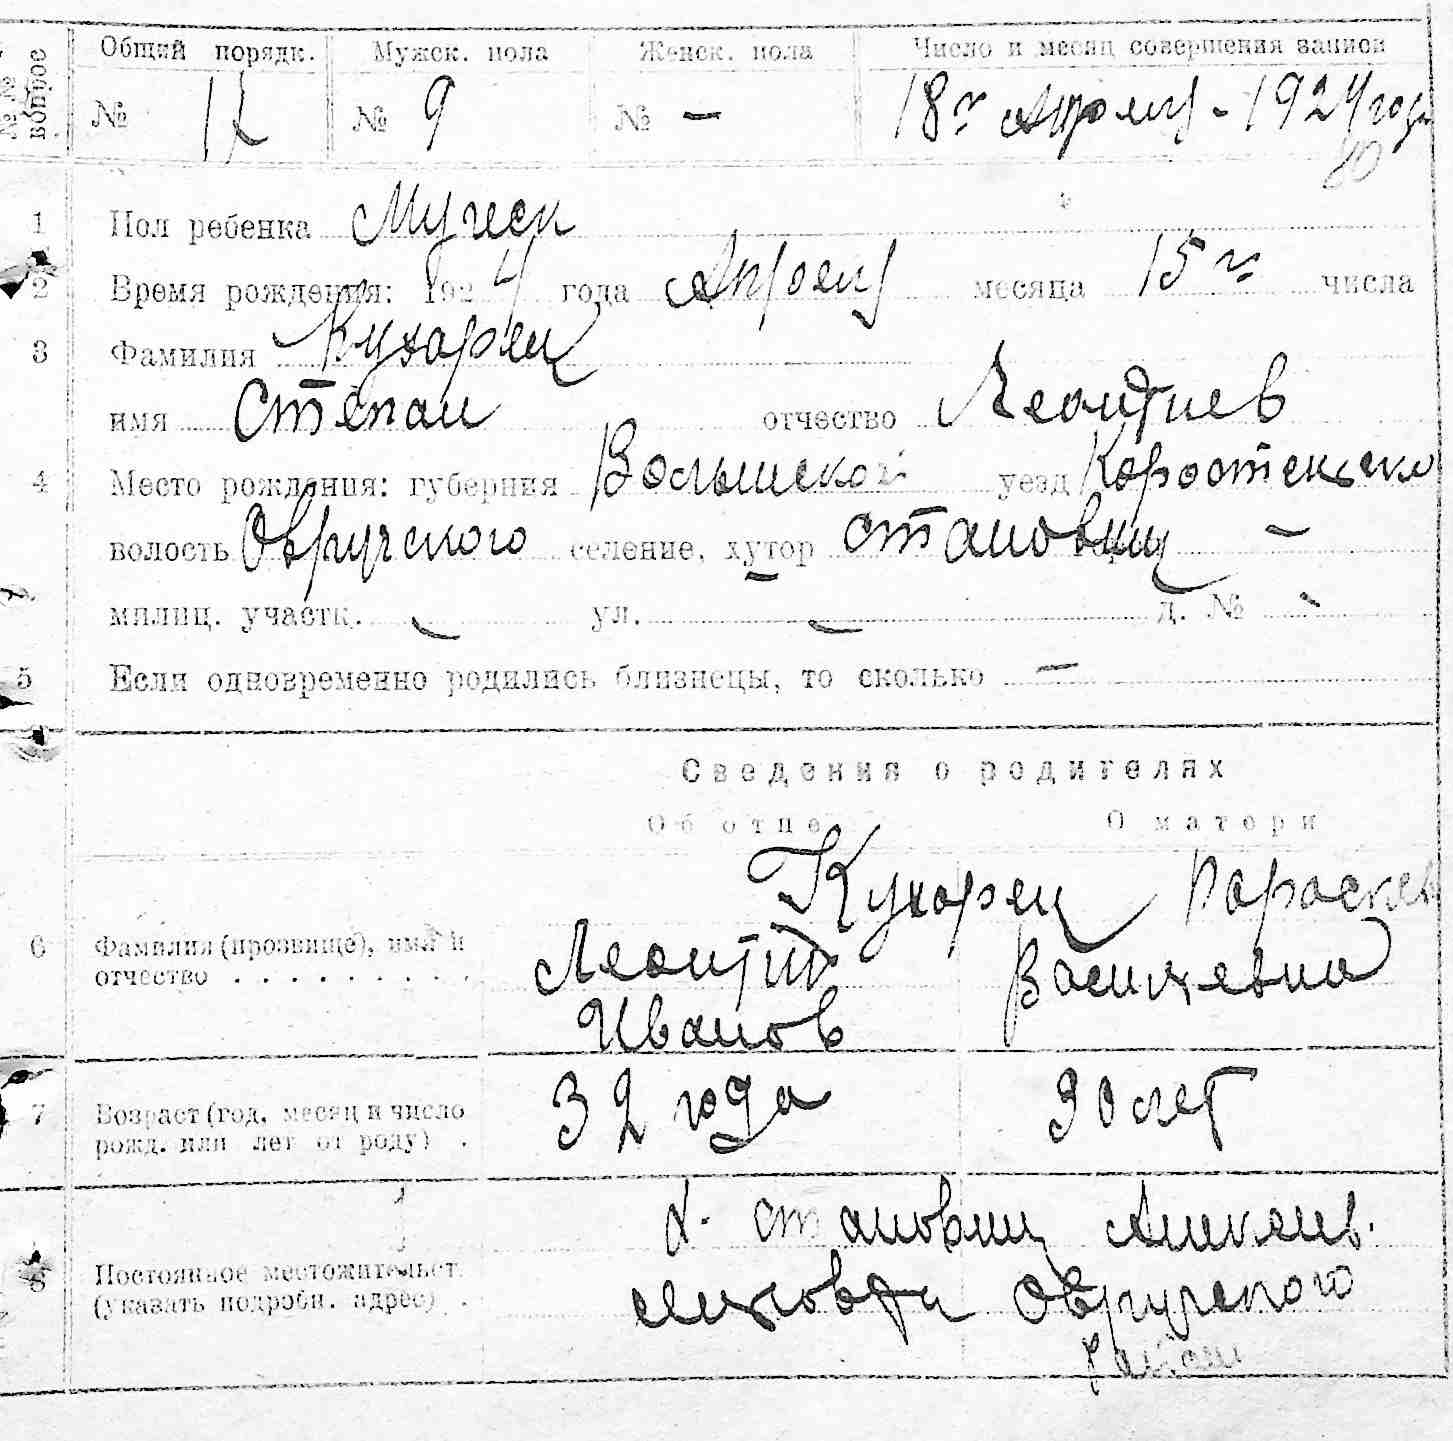 №№ вопрос
Общий порядк. Мужск. пола Женск. пола Число и месяц совершения записи
№ № 9 № – 18го Апреля - 1924 года
1 Пол ребенка Мужеск
2 Время рождения: 1924 года Апреля месяца 15го числа
3 Фамилия Кухарец
имя Степан отчество Леонтиев
4 Место рождения: губерния Волынской уезд Коростенско
волость Овручского селение, хутор Становищ –
милиц. участк. – ул. – д. № –
5 Если одновременно родились близнецы, то сколько –
Сведения о родителях
Об отце О матери
Кухарец Пораскев
6 Фамилия (прозвище), имя и Леонтий Васильевна
отчество
Иванов
7 Возраст (год, месяц и число 32 года 30 лет
рожд. или лет от роду)
Становищ
8 Постоянное местожительст. Овручского
(указать подробн. адрес)
район